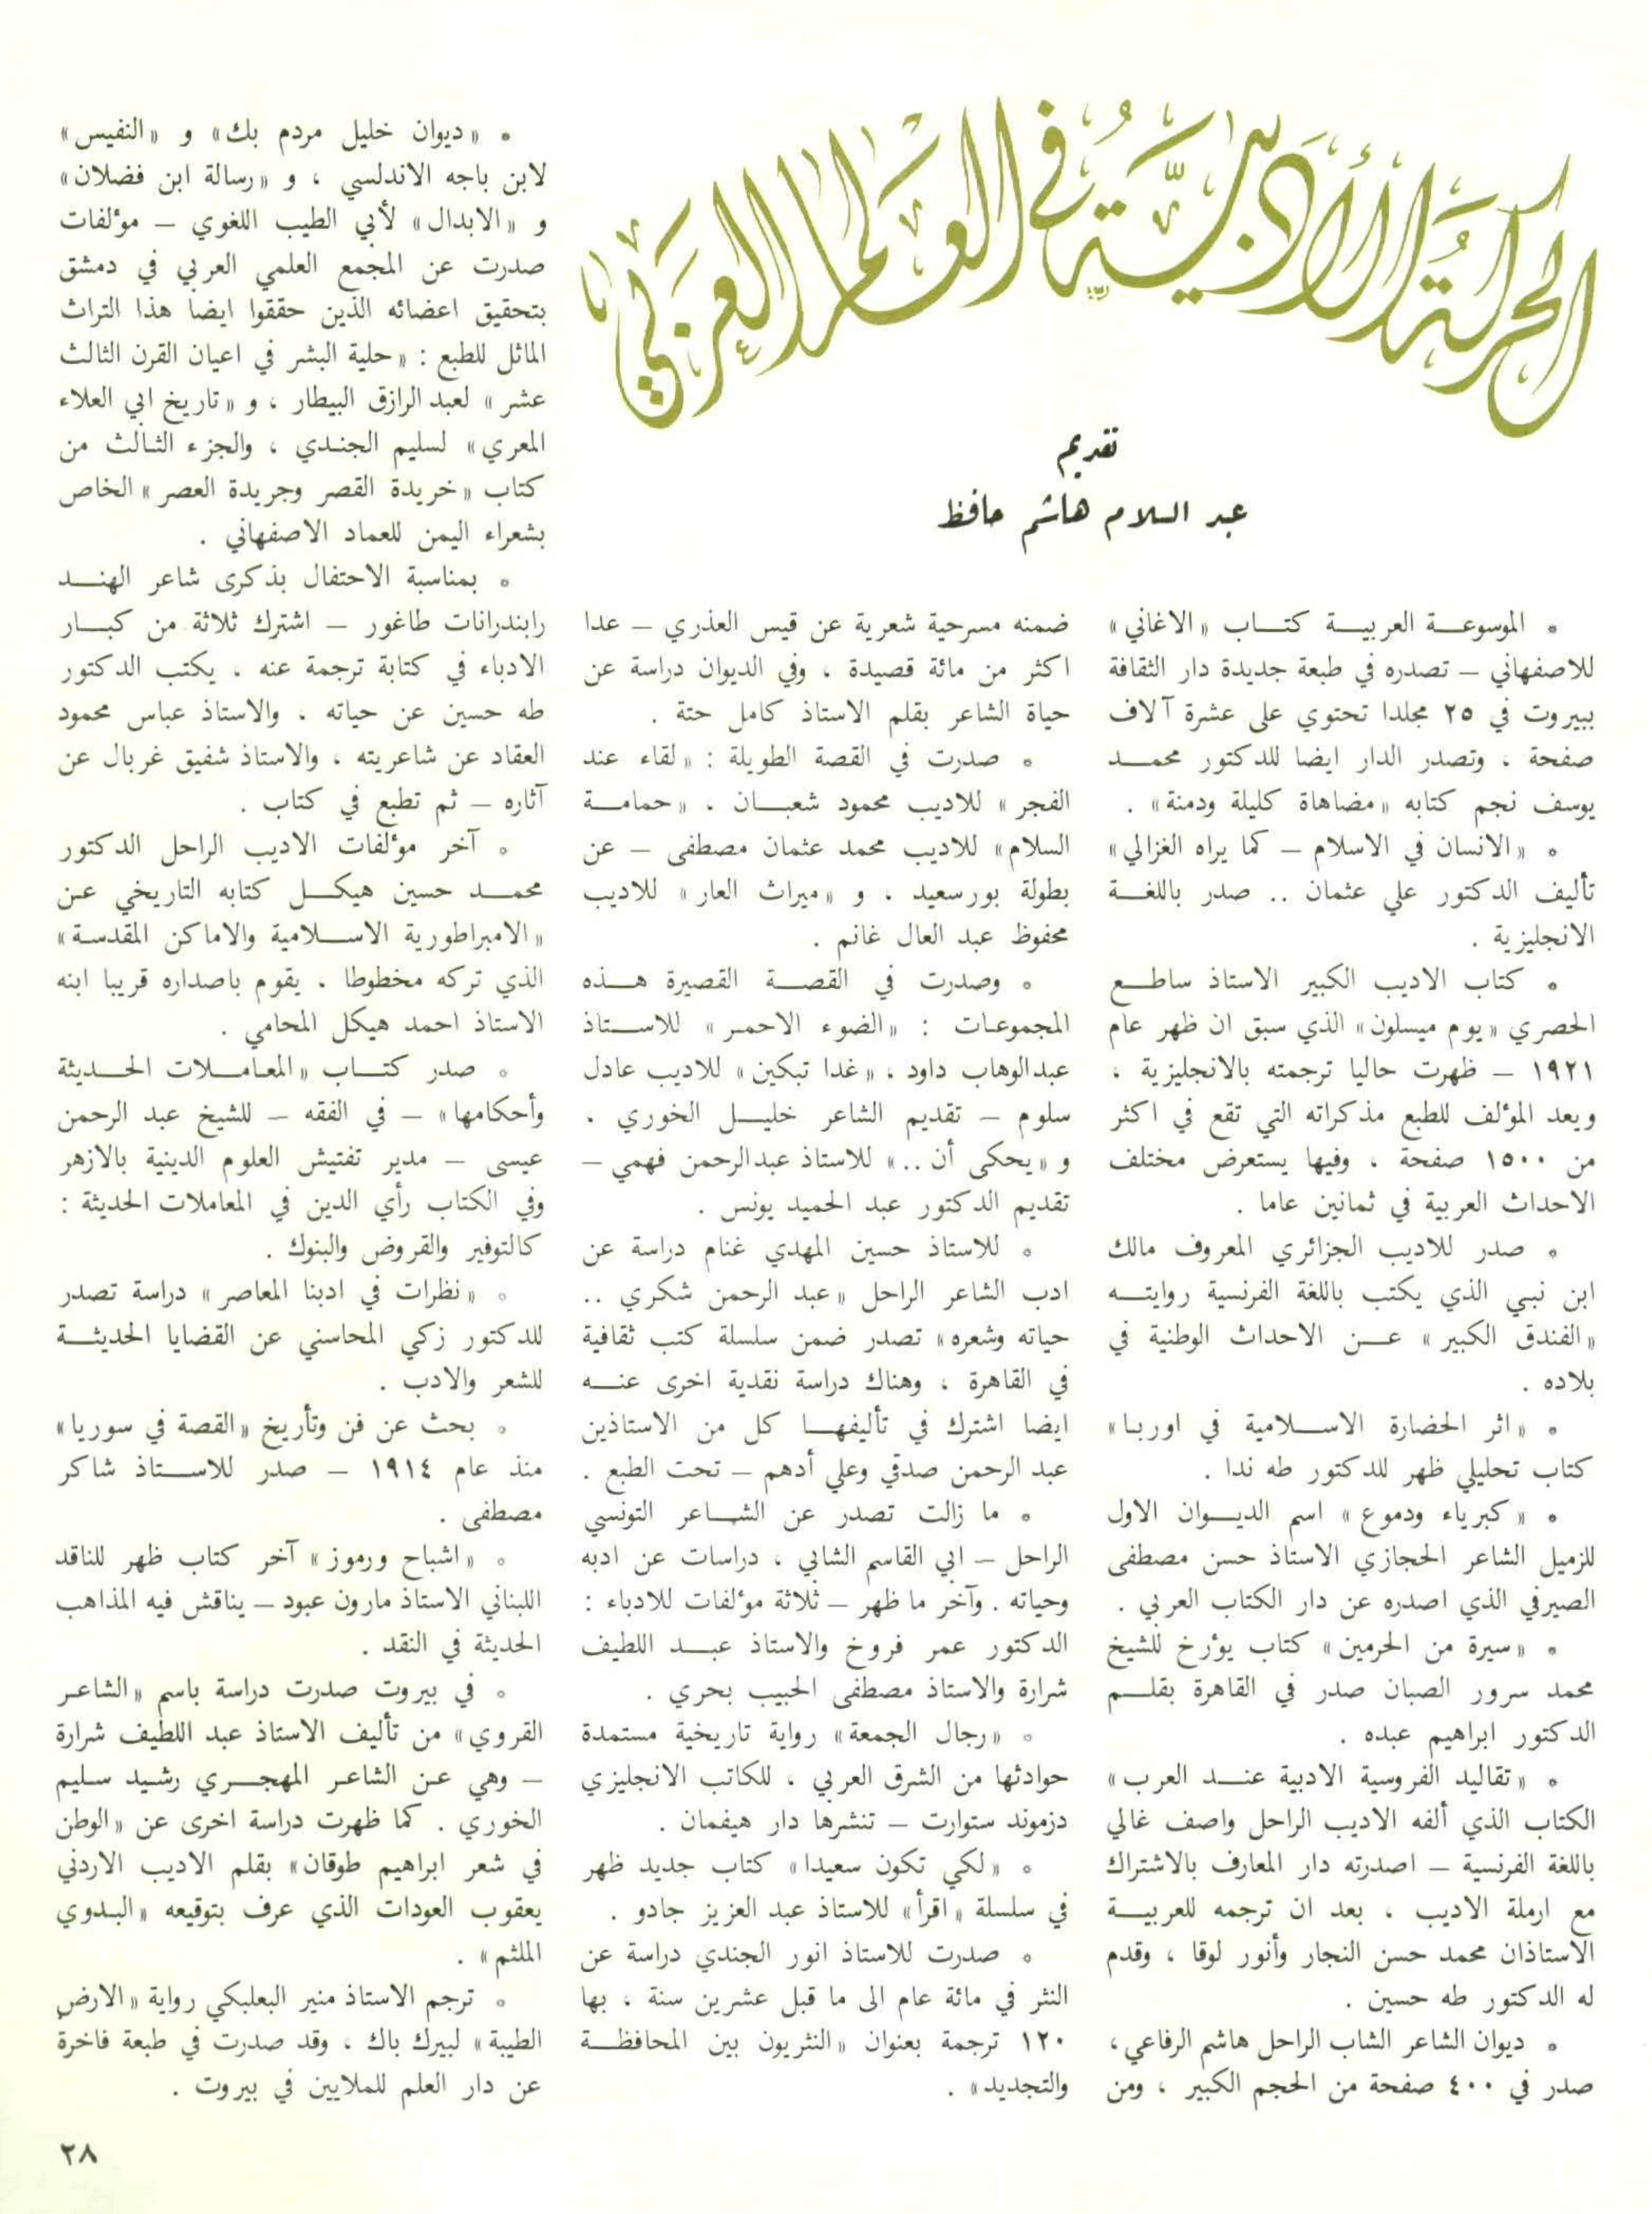 الحركة الأدبية في العالم العربي
تقديم
عبد السلام هاشم حافظ
• الموسوعة العربية كتاب «الاغاني»
للاصفهاني – تصدره في طبعة جديدة دار الثقافة
ببيروت في ٢٥ مجلدا تحتوي على عشرة آلاف
صفحة ، وتصدر الدار ايضا للدكتور محمد
يوسف نجم كتابه «مضاهاة كليلة ودمنة» .
• «الانسان في الاسلام – كما يراه الغزالي»
تأليف الدكتور علي عثمان .. صدر باللغة
الانجليزية .
• كتاب الاديب الكبير الاستاذ ساطع
الحصري «يوم ميسلون» الذي سبق ان ظهر عام
١٩٢١ – ظهرت حاليا ترجمته بالانجليزية ،
ويعد المؤلف للطبع مذكراته التي تقع في اكثر
من ١٥٠٠ صفحة ، وفيها يستعرض مختلف
الاحداث العربية في ثمانين عاما .
• صدر للاديب الجزائري المعروف مالك
ابن نبي الذي يكتب باللغة الفرنسية روايته
«الفندق الكبير» عن الاحداث الوطنية في
بلاده .
• «اثر الحضارة الاسلامية في اوربا»
كتاب تحليلي ظهر للدكتور طه ندا .
• «كبرياء ودموع» اسم الديوان الاول
للزميل الشاعر الحجازي الاستاذ حسن مصطفى
الصيرفي الذي اصدره عن دار الكتاب العربي .
• «سيرة من الحرمين» كتاب يؤرخ للشيخ
محمد سرور الصبان صدر في القاهرة بقلم
الدكتور ابراهيم عبده .
• «تقاليد الفروسية الادبية عند العرب»
الكتاب الذي ألفه الاديب الراحل واصف غالي
باللغة الفرنسية – اصدرته دار المعارف بالاشتراك
مع ارملة الاديب ، بعد ان ترجمه للعربية
الاستاذان محمد حسن النجار وأنور لوقا ، وقدم
له الدكتور طه حسين .
• ديوان الشاعر الشاب الراحل هاشم الرفاعي،
صدر في ٤٠٠ صفحة من الحجم الكبير ، ومن
ضمنه مسرحية شعرية عن قيس العذري – عدا
اكثر من مائة قصيدة ، وفي الديوان دراسة عن
حياة الشاعر بقلم الاستاذ كامل حتة .
• صدرت في القصة الطويلة : «لقاء عند
الفجر» للاديب محمود شعبان ، «حمامة
السلام» للاديب محمد عثمان مصطفى – عن
بطولة بورسعيد ، و «ميراث العار» للاديب
محفوظ عبد العال غانم .
• وصدرت في القصة القصيرة هذه
المجموعات : «الضوء الاحمر» للاستاذ
عبدالوهاب داود ، «غدا تبكين» للاديب عادل
سلوم – تقديم الشاعر خليل الخوري ،
و «يحكى أن ..» للاستاذ عبدالرحمن فهمي –
تقديم الدكتور عبد الحميد يونس .
• للاستاذ حسين المهدي غنام دراسة عن
ادب الشاعر الراحل «عبد الرحمن شكري ..
حياته وشعره» تصدر ضمن سلسلة كتب ثقافية
في القاهرة ، وهناك دراسة نقدية اخرى عنه
ايضا اشترك في تأليفها كل من الاستاذين
عبد الرحمن صدقي وعلي أدهم – تحت الطبع .
• ما زالت تصدر عن الشاعر التونسي
الراحل – ابي القاسم الشابي ، دراسات عن ادبه
وحياته . وآخر ما ظهر – ثلاثة مؤلفات للادباء :
الدكتور عمر فروخ والاستاذ عبد اللطيف
شرارة والاستاذ مصطفى الحبيب بحري .
• «رجال الجمعة» رواية تاريخية مستمدة
حوادثها من الشرق العربي ، للكاتب الانجليزي
دزموند ستوارت – تنشرها دار هيفمان .
• «لكي تكون سعيدا» كتاب جديد ظهر
في سلسلة «اقرأ» للاستاذ عبد العزيز جادو .
• صدرت للاستاذ انور الجندي دراسة عن
النثر في مائة عام الى ما قبل عشرين سنة ، بها
١٢٠ ترجمة بعنوان «النثريون بين المحافظة
والتجديد» .
• «ديوان خليل مردم بك» و «النفيس»
لابن باجه الاندلسي ، و «رسالة ابن فضلان»
و «الابدال» لأبي الطيب اللغوي – مؤلفات
صدرت عن المجمع العلمي العربي في دمشق
بتحقيق اعضائه الذين حققوا ايضا هذا التراث
الماثل للطبع : «حلية البشر في اعيان القرن الثالث
عشر» لعبد الرازق البيطار ، و «تاريخ ابي العلاء
المعري» لسليم الجندي ، والجزء الثالث من
كتاب «خريدة القصر وجريدة العصر» الخاص
بشعراء اليمن للعماد الاصفهاني .
• بمناسبة الاحتفال بذكرى شاعر الهند
رابندرانات طاغور – اشترك ثلاثة من كبار
الادباء في كتابة ترجمة عنه . يكتب الدكتور
طه حسين عن حياته ، والاستاذ عباس محمود
العقاد عن شاعريته ، والاستاذ شفيق غربال عن
آثاره – ثم تطبع في كتاب .
• آخر مؤلفات الاديب الراحل الدكتور
محمد حسين هيكل كتابه التاريخي عن
«الامبراطورية الاسلامية والاماكن المقدسة»
الذي تركه مخطوطا . يقوم باصداره قريبا ابنه
الاستاذ احمد هيكل المحامي .
• صدر كتاب «المعاملات الحديثة
وأحكامها» – في الفقه – للشيخ عبد الرحمن
عيسى – مدير تفتيش العلوم الدينية بالازهر
وفي الكتاب رأي الدين في المعاملات الحديثة :
كالتوفير والقروض والبنوك .
• «نظرات في ادبنا المعاصر» دراسة تصدر
للدكتور زكي المحاسني عن القضايا الحديثة
للشعر والادب .
• بحث عن فن وتأريخ «القصة في سوريا»
منذ عام ١٩١٤ – صدر للاستاذ شاكر
مصطفى .
• «اشباح ورموز» آخر كتاب ظهر للناقد
اللبناني الاستاذ مارون عبود – يناقش فيه المذاهب
الحديثة في النقد .
• في بيروت صدرت دراسة باسم «الشاعر
القروي» من تأليف الاستاذ عبد اللطيف شرارة
– وهي عن الشاعر المهجري رشيد سليم
الخوري . كما ظهرت دراسة اخرى عن «الوطن
في شعر ابراهيم طوقان» بقلم الاديب الاردني
يعقوب العودات الذي عرف بتوقيعه «البدوي
الملثم» .
• ترجم الاستاذ منير البعلبكي رواية «الارض
الطيبة» لبيرك باك ، وقد صدرت في طبعة فاخرة
عن دار العلم للملايين في بيروت .
٢٨